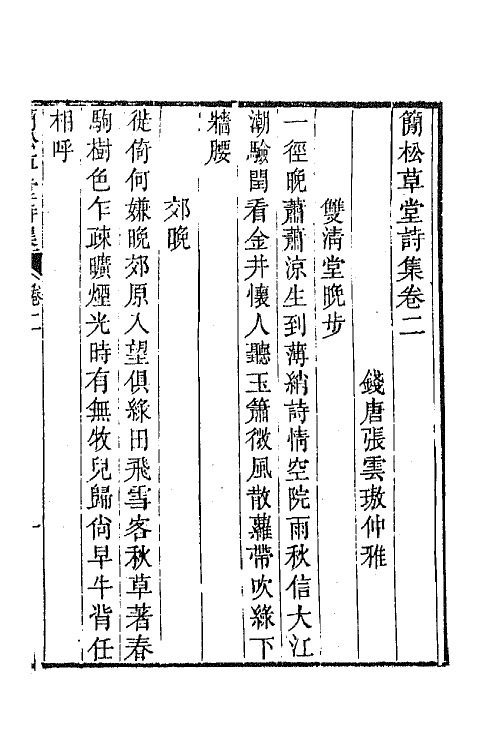 簡松草堂詩集卷二
錢唐張雲璈仲雅
雙清堂晚步
一徑晚蕭蕭涼生到薄綃詩情空院雨秋信大江
潮驗閏看金井懷人聽玉簫微風散蘿帶吹綠下
牆腰
郊晚
徙倚何嫌晚郊原入望俱綠田飛雪客秋草著春
駒樹色乍疎曠煙光時有無牧兒歸尙早牛背任
相呼
卷二
一